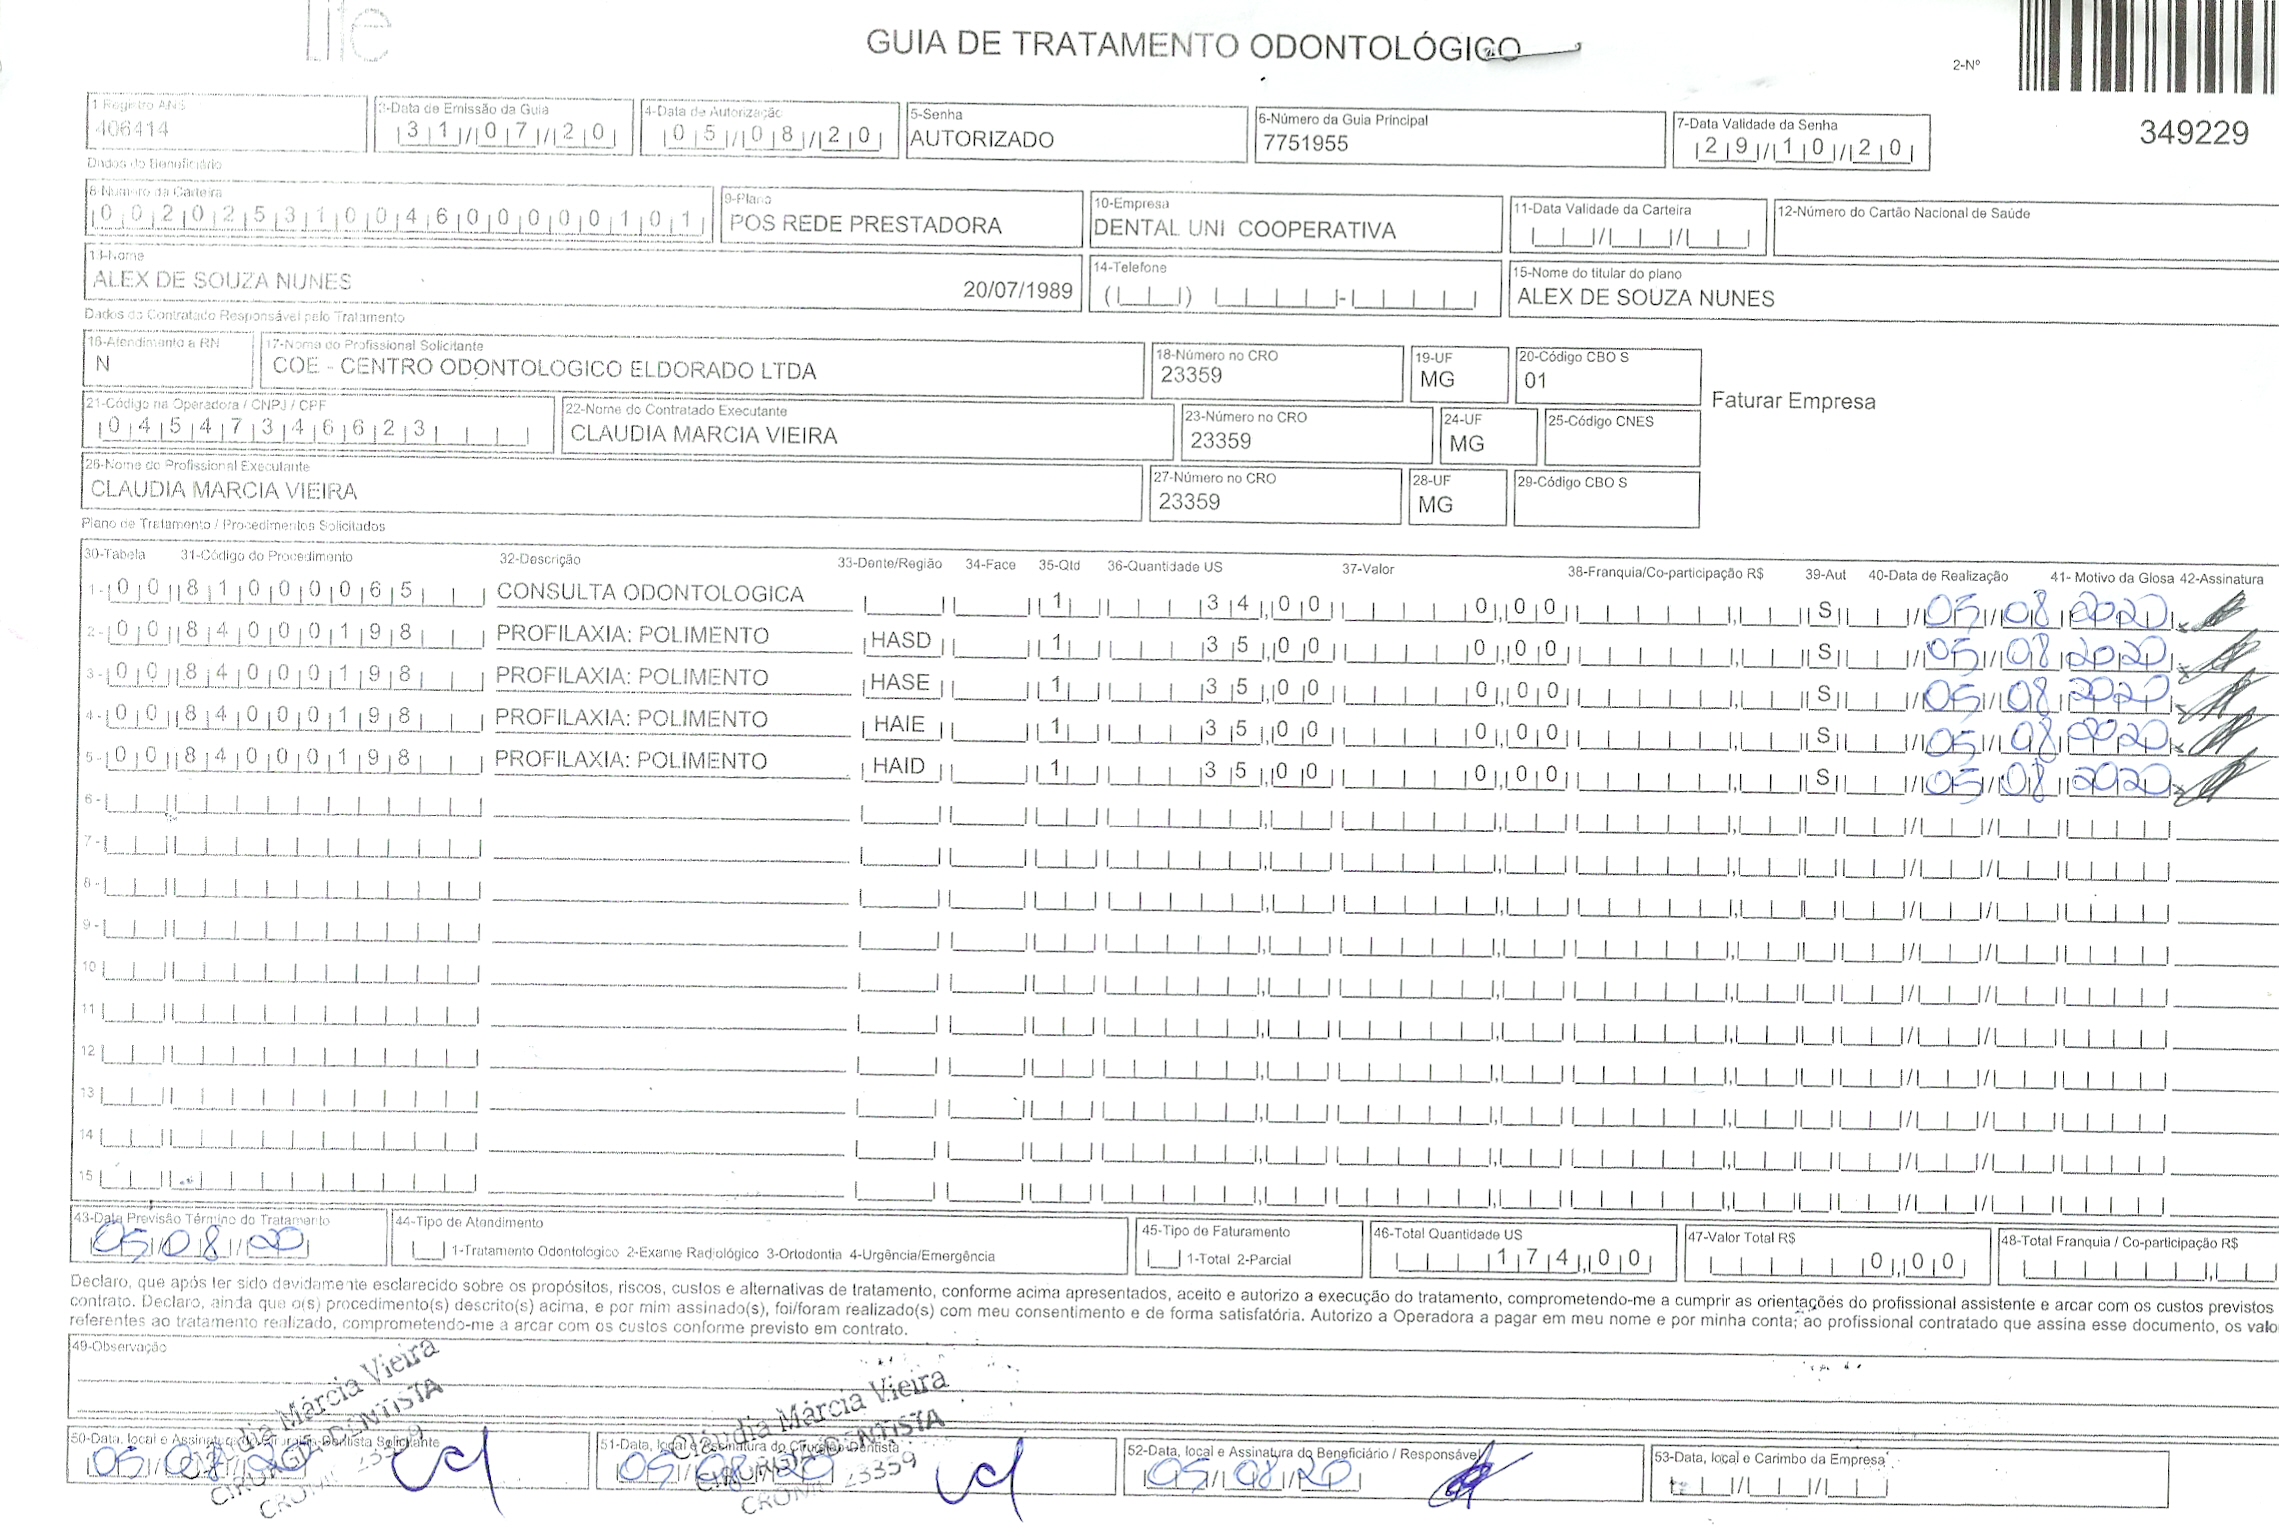 life
GUIA DE TRATAMENTO ODONTOLÓGICO
2-Nº
349229
1 Registro ANS
406414
3-Data de Emissão da Guia
31/07/20
4-Data de Autorização
05/08/20
5-Senha
AUTORIZADO
6-Número da Guia Principal
7751955
7-Data Validade da Senha
29/10/20
Dados do Beneficiário
8-Número da Carteira
00202531004600000101
9-Plano
POS REDE PRESTADORA
10-Empresa
DENTAL UNI COOPERATIVA
11-Data Validade da Carteira
12-Número do Cartão Nacional de Saúde
13-Nome
ALEX DE SOUZA NUNES 20/07/1989
14-Telefone
15-Nome do titular do plano
ALEX DE SOUZA NUNES
Dados do Contratado Responsável pelo Tratamento
16-Atendimento a RN
N
17-Nome do Profissional Solicitante
COE - CENTRO ODONTOLOGICO ELDORADO LTDA
18-Número no CRO
23359
19-UF
MG
20-Código CBO S
01
Faturar Empresa
21-Código na Operadora / CNPJ / CPF
04547346623
22-Nome do Contratado Executante
CLAUDIA MARCIA VIEIRA
23-Número no CRO
23359
24-UF
MG
25-Código CNES
26-Nome do Profissional Executante
CLAUDIA MARCIA VIEIRA
27-Número no CRO
23359
28-UF
MG
29-Código CBO S
Plano de Tratamento / Procedimentos Solicitados
30-Tabela 31-Código do Procedimento 32-Descrição 33-Dente/Região 34-Face 35-Qtd 36-Quantidade US 37-Valor 38-Franquia/Co-participação R$ 39-Aut 40-Data de Realização 41- Motivo da Glosa 42-Assinatura
1- 00 81000065 CONSULTA ODONTOLOGICA 1 34,00 0,00 S 05/08/2020
2- 00 84000198 PROFILAXIA: POLIMENTO HASD 1 35,00 0,00 S 05/08/2020
3- 00 84000198 PROFILAXIA: POLIMENTO HASE 1 35,00 0,00 S 05/08/2020
4- 00 84000198 PROFILAXIA: POLIMENTO HAIE 1 35,00 0,00 S 05/08/2020
5- 00 84000198 PROFILAXIA: POLIMENTO HAID 1 35,00 0,00 S 05/08/2020
6-
7-
8-
9-
10
11
12
13
14
15
43-Data Previsão Término do Tratamento
05/08/20
44-Tipo de Atendimento
1-Tratamento Odontológico 2-Exame Radiológico 3-Ortodontia 4-Urgência/Emergência
45-Tipo de Faturamento
1-Total 2-Parcial
46-Total Quantidade US
174,00
47-Valor Total R$
0,00
48-Total Franquia / Co-participação R$
Declaro, que após ter sido devidamente esclarecido sobre os propósitos, riscos, custos e alternativas de tratamento, conforme acima apresentados, aceito e autorizo a execução do tratamento, comprometendo-me a cumprir as orientações do profissional assistente e arcar com os custos previstos
contrato. Declaro, ainda que o(s) procedimento(s) descrito(s) acima, e por mim assinado(s), foi/foram realizado(s) com meu consentimento e de forma satisfatória. Autorizo a Operadora a pagar em meu nome e por minha conta, ao profissional contratado que assina esse documento, os valo
referentes ao tratamento realizado, comprometendo-me a arcar com os custos conforme previsto em contrato.
49-Observação
50-Data, local e Assinatura do Cirurgião-Dentista Solicitante
05/08/20
Cláudia Márcia Vieira
CIRURGIÃ-DENTISTA
CROMG 23359
51-Data, local e Assinatura do Cirurgião-Dentista
05/08/20
Cláudia Márcia Vieira
CIRURGIÃ-DENTISTA
CROMG 23359
52-Data, local e Assinatura do Beneficiário / Responsável
05/08/20
53-Data, local e Carimbo da Empresa